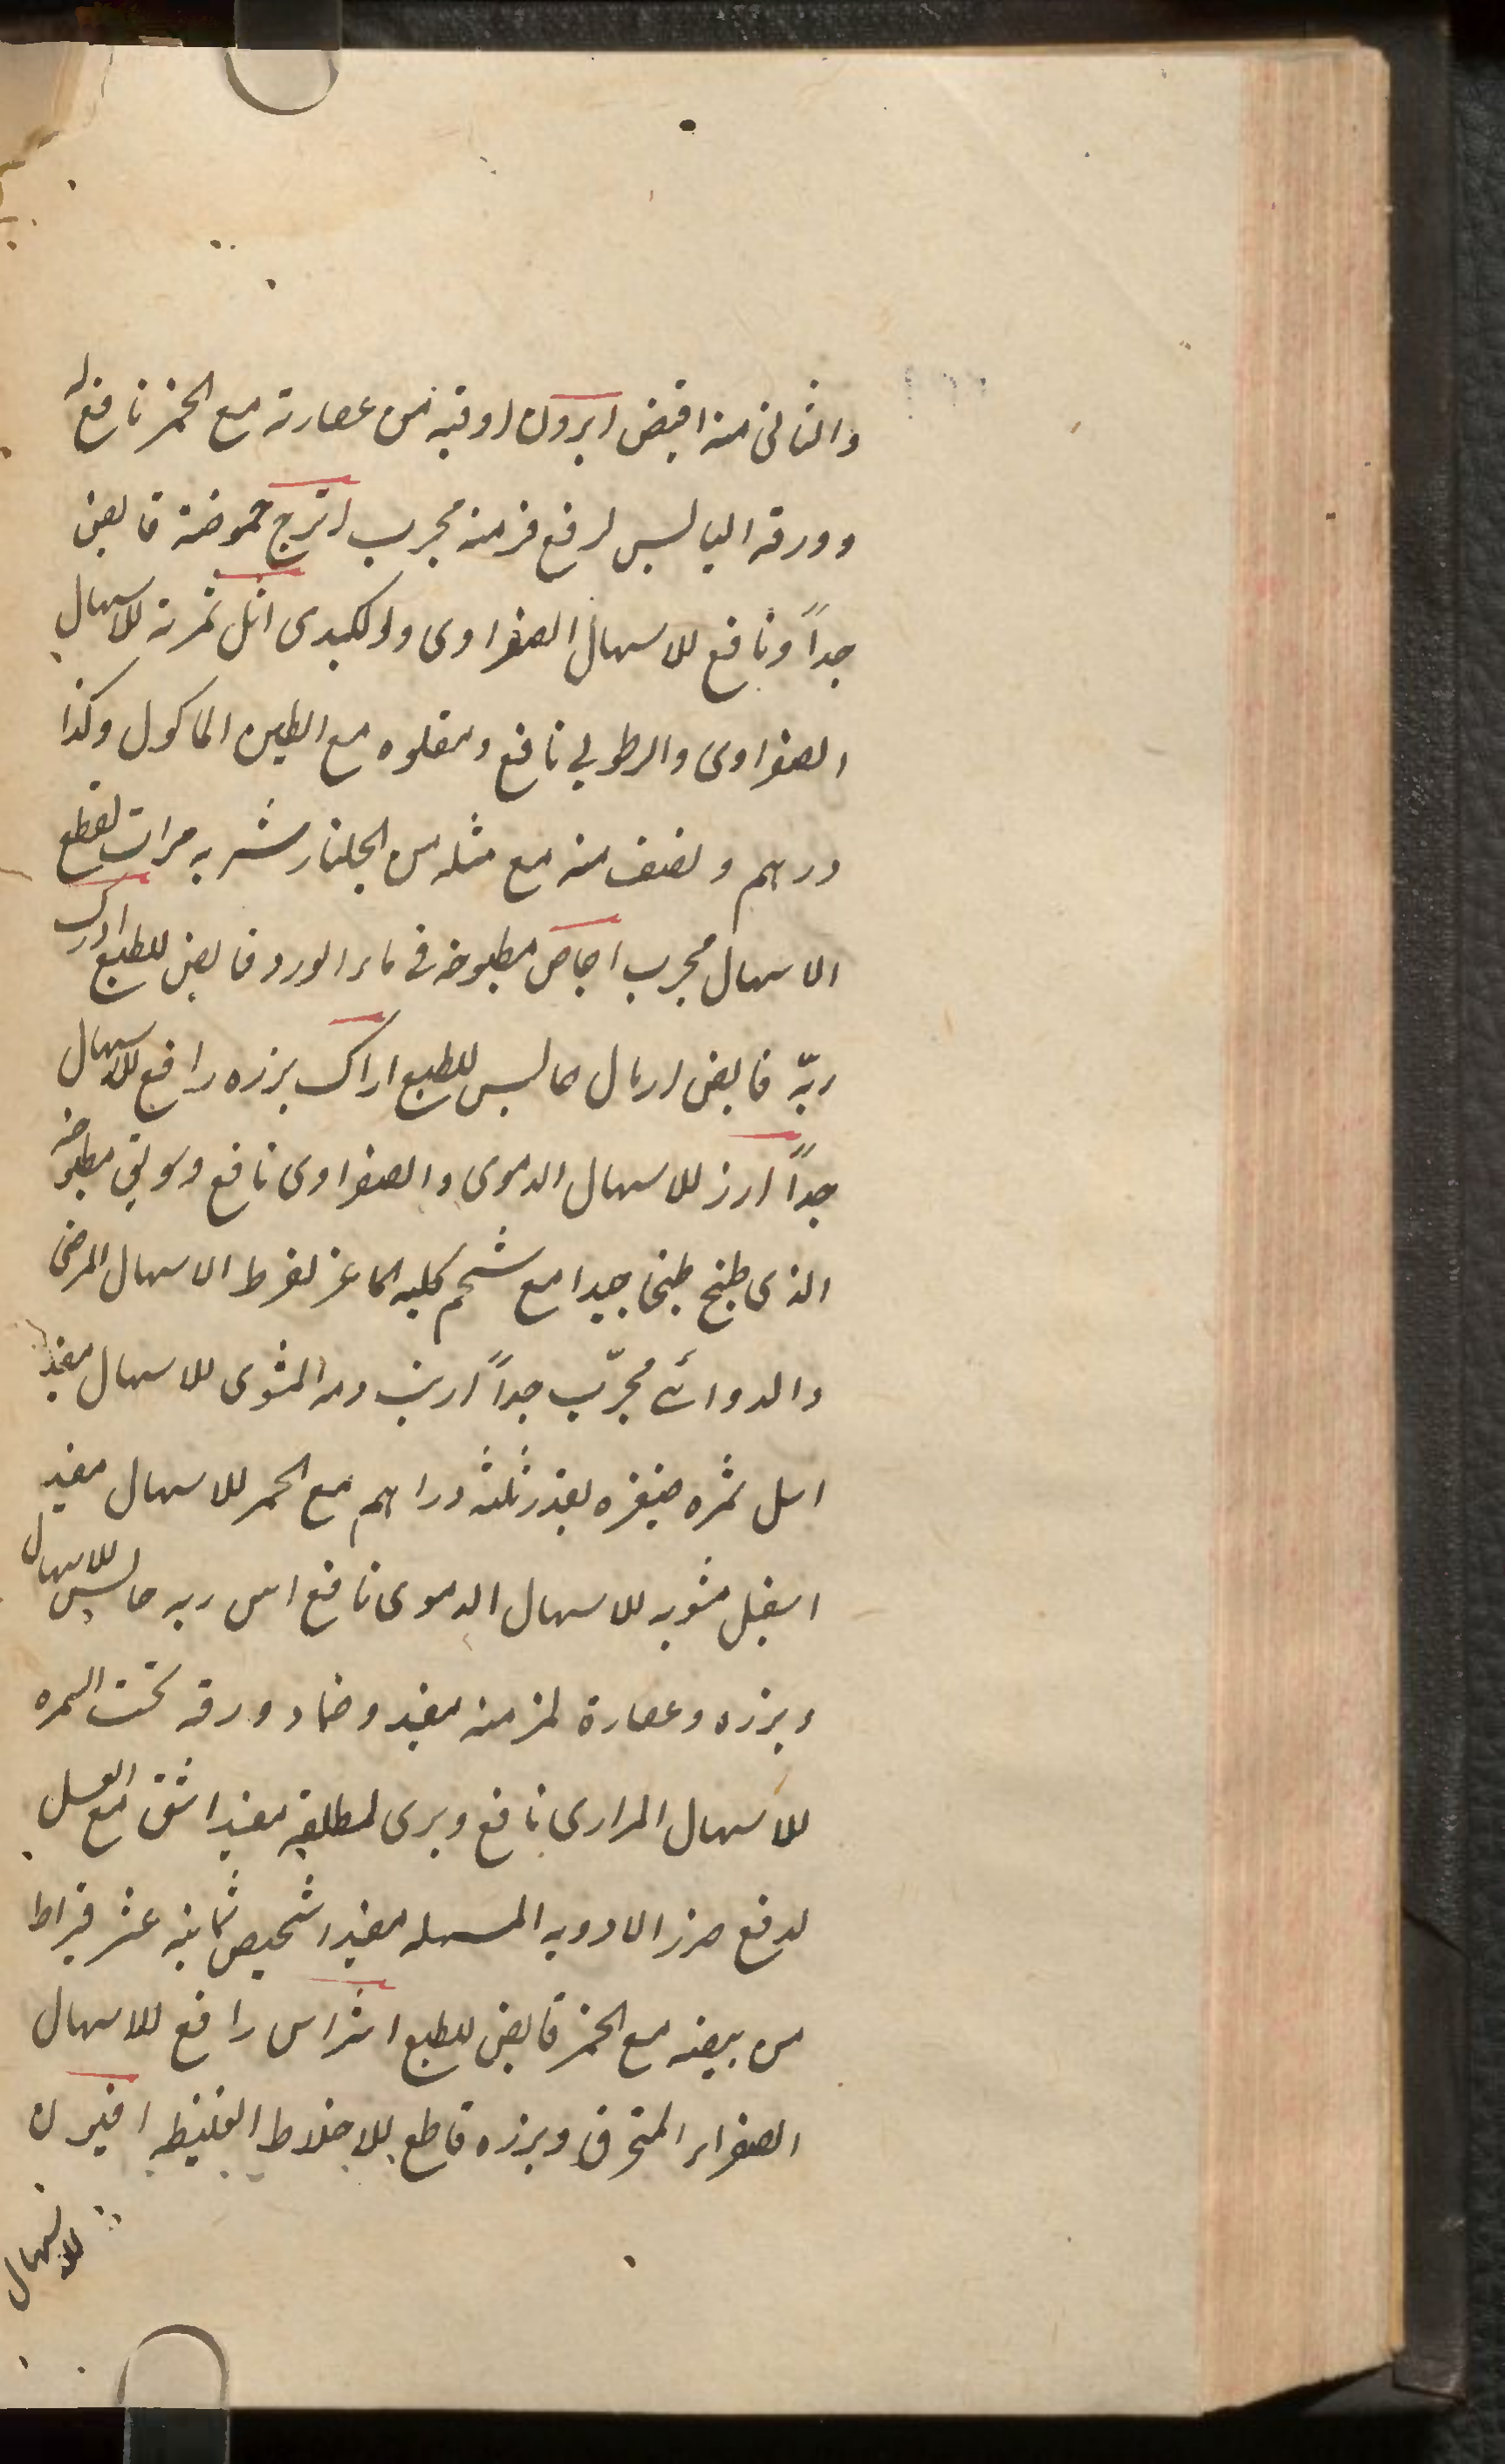 والثانی منه اقبض ابرون اوقیه من عصارته مع الخمر نافع له
وورقه الیابس لرفع مزمنه مجرب اترج حموضته قابض
جداً ونافع للاسهال الصفراوی والکبدی اثل ثمرته للاسهال
الصفراوی والرطوبی نافع ومقلوه مع الطین الماکول وکذا
درهم ونصف منه مع مثله من الجلنار شربه مرات لقطع
الاسهال مجرب اجاص مطبوخه فی ماء الورد قابض للطبع ادرک
ربّه قابض اربال حابس للطبع اراک بزره رافع للاسهال
جداً ارز للاسهال الدموی والصفراوی نافع وسویق مطبوخه
الذی طبخ طبخا جیدا مع شحم کلیه الماعز لفرط الاسهال المرضی
والدوائی مجرّب جداً ارنب دمه المشوی للاسهال مفید
اسل ثمره بقدر ثلثه دراهم مع الخمر للاسهال مفید
اسقیل مشویه للاسهال الدموی نافع اس ربه حابس للاسهال
وبزره وعصارة لمزمنه مفید وضماد ورقه تحت السره
للاسهال المراری نافع ویری لمطلقه مفید اشق مع العسل
لدفع ضرر الادویه المسهله مفید اشخیص ثمانیه عشر قیراط
من بیضه مع الخمر قابض للطبع اشراس رافع للاسهال
الصفراء المحترق وبزره قاطع للاخلاط الغلیظه افیون
للاسهال